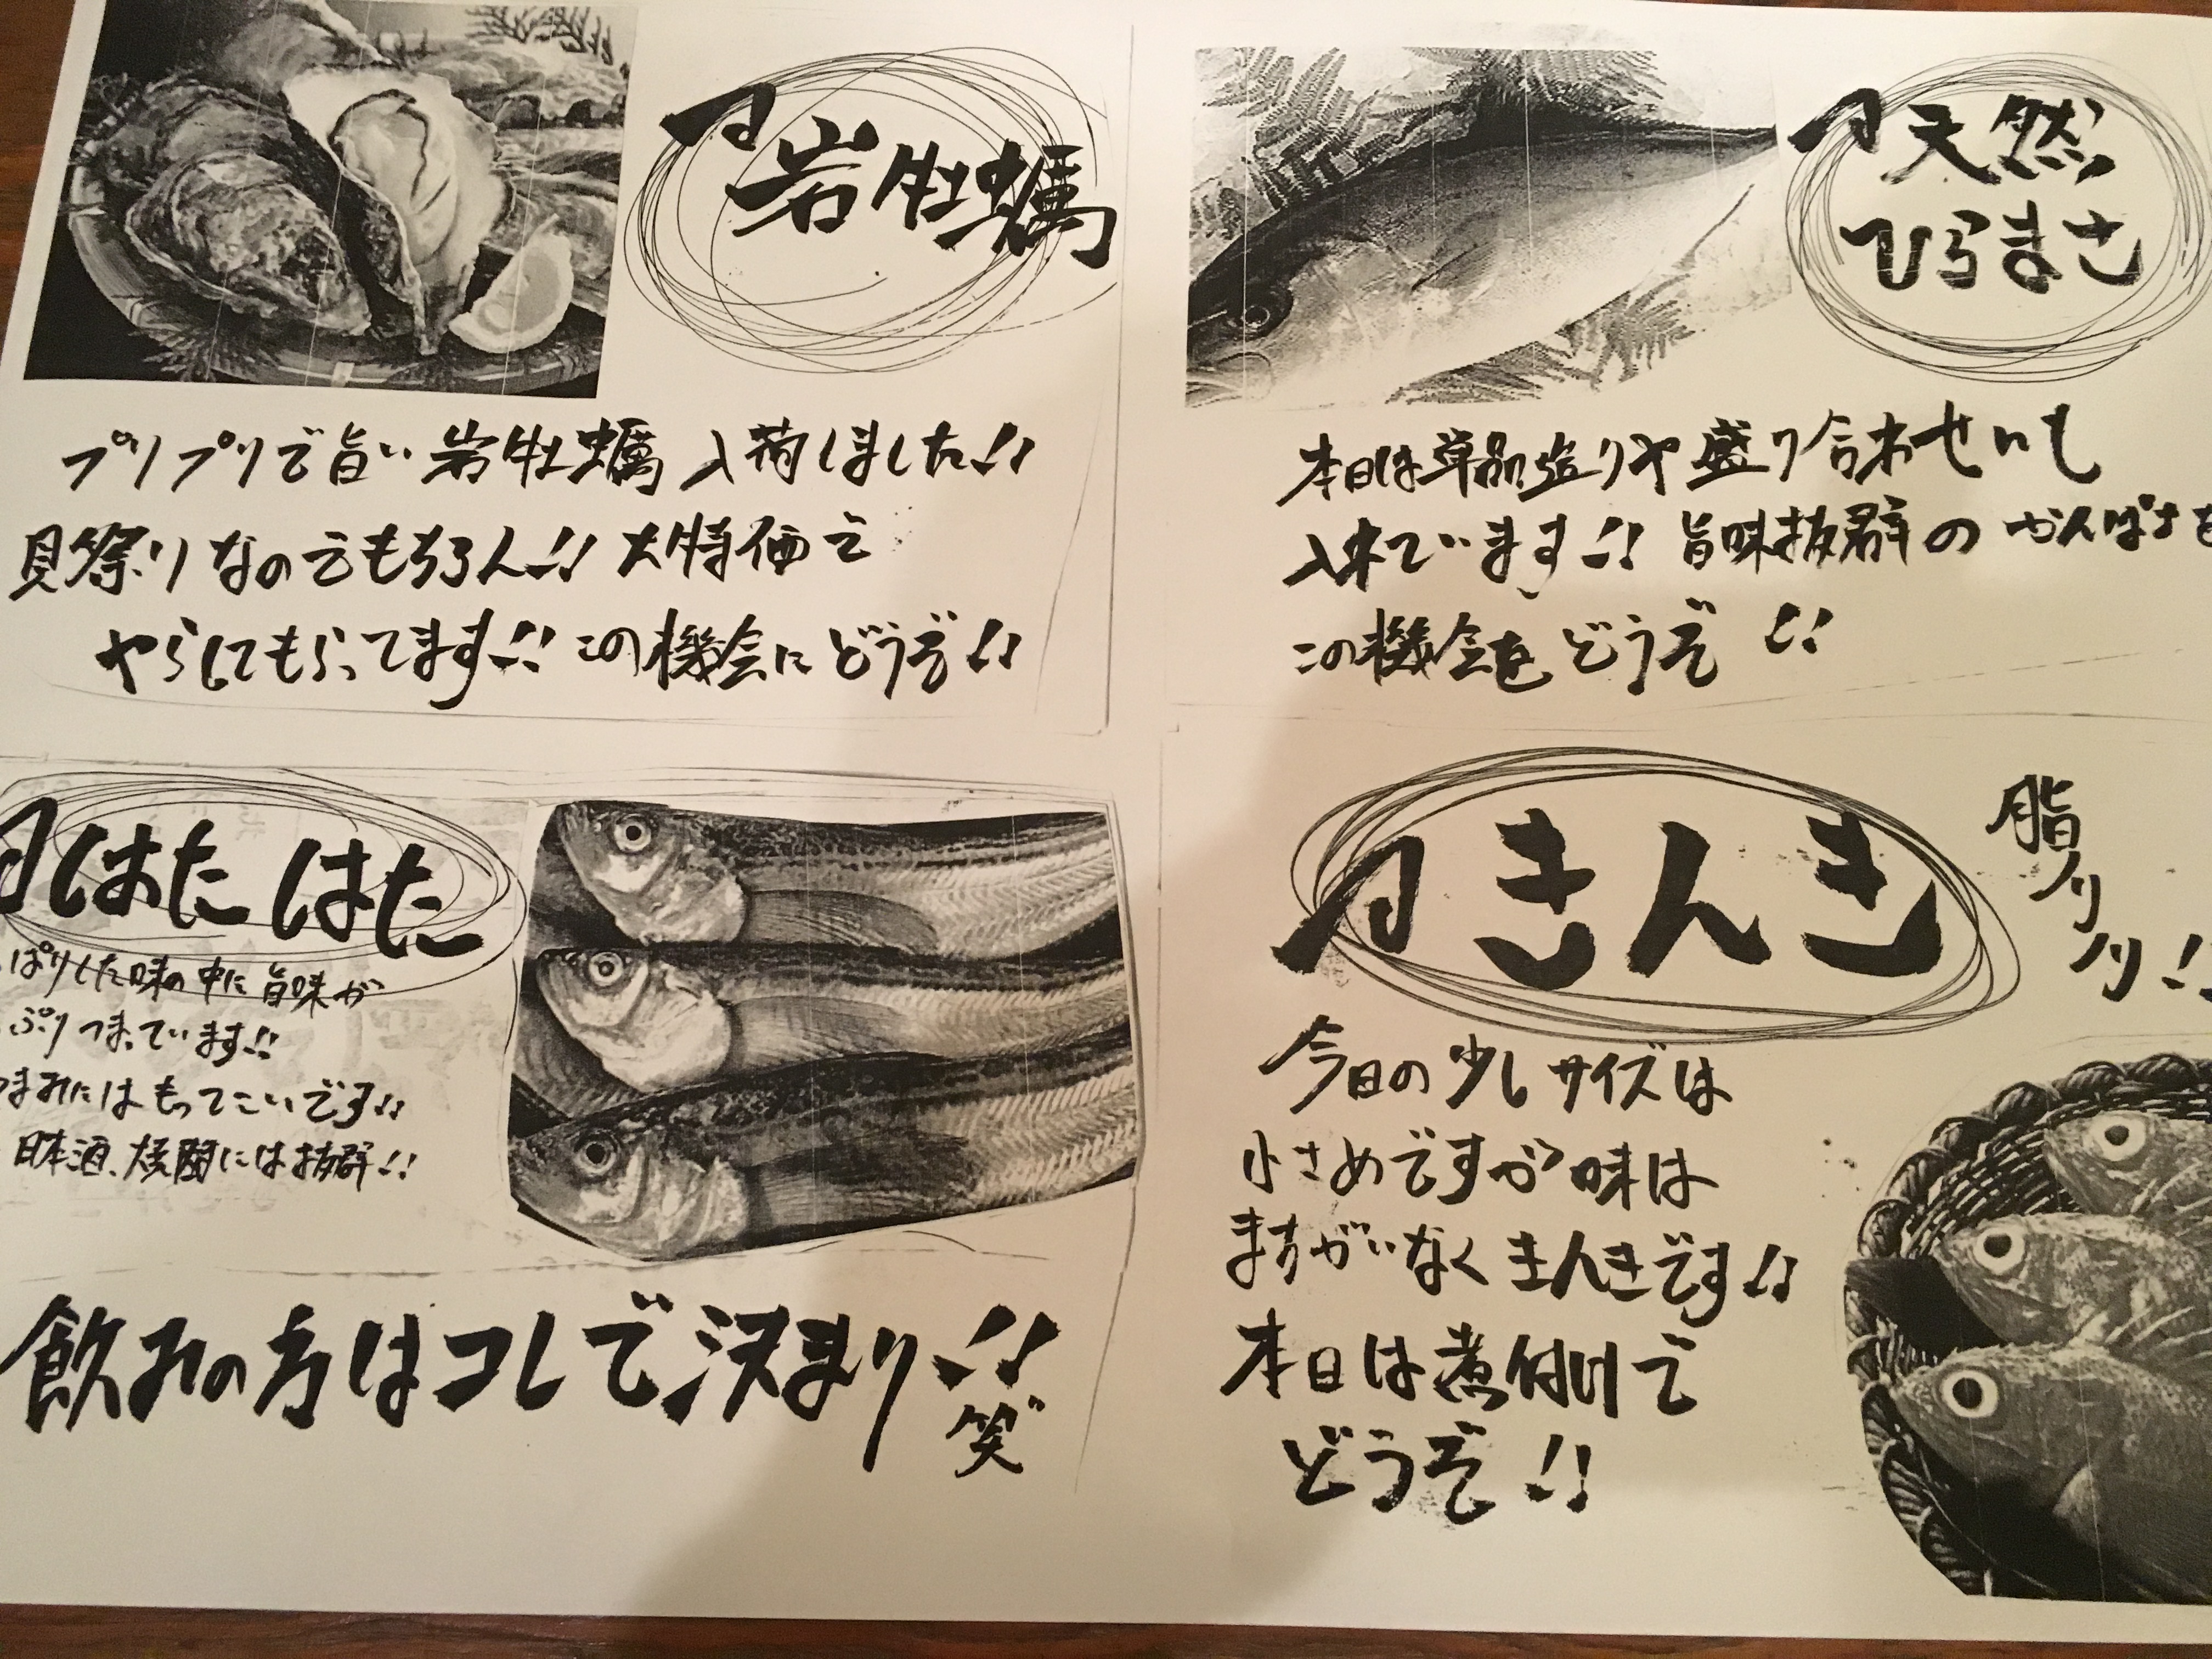 岩牡蠣
プリプリで旨い岩牡蠣入荷しました!!
貝祭りなのでもちろん!!大特価で
やらしてもらってます!!この機会にどうぞ!!
天然
ひらまさ
本日は単品造りや盛り合わせにも
入れています!!旨味抜群のかんぱちを
この機会をどうぞ!!
はたはた
ぱりした味の中に旨味が
ぷりつまっています!!
つまみにはもってこいです!!
日本酒、焼酎には抜群!!
飲みの方はコレで決まり!!
笑
きんき
脂ノリノリ!!
今日の少しサイズは
小さめですが味は
まちがいなくきんきです!!
本日は煮付けで
どうぞ!!